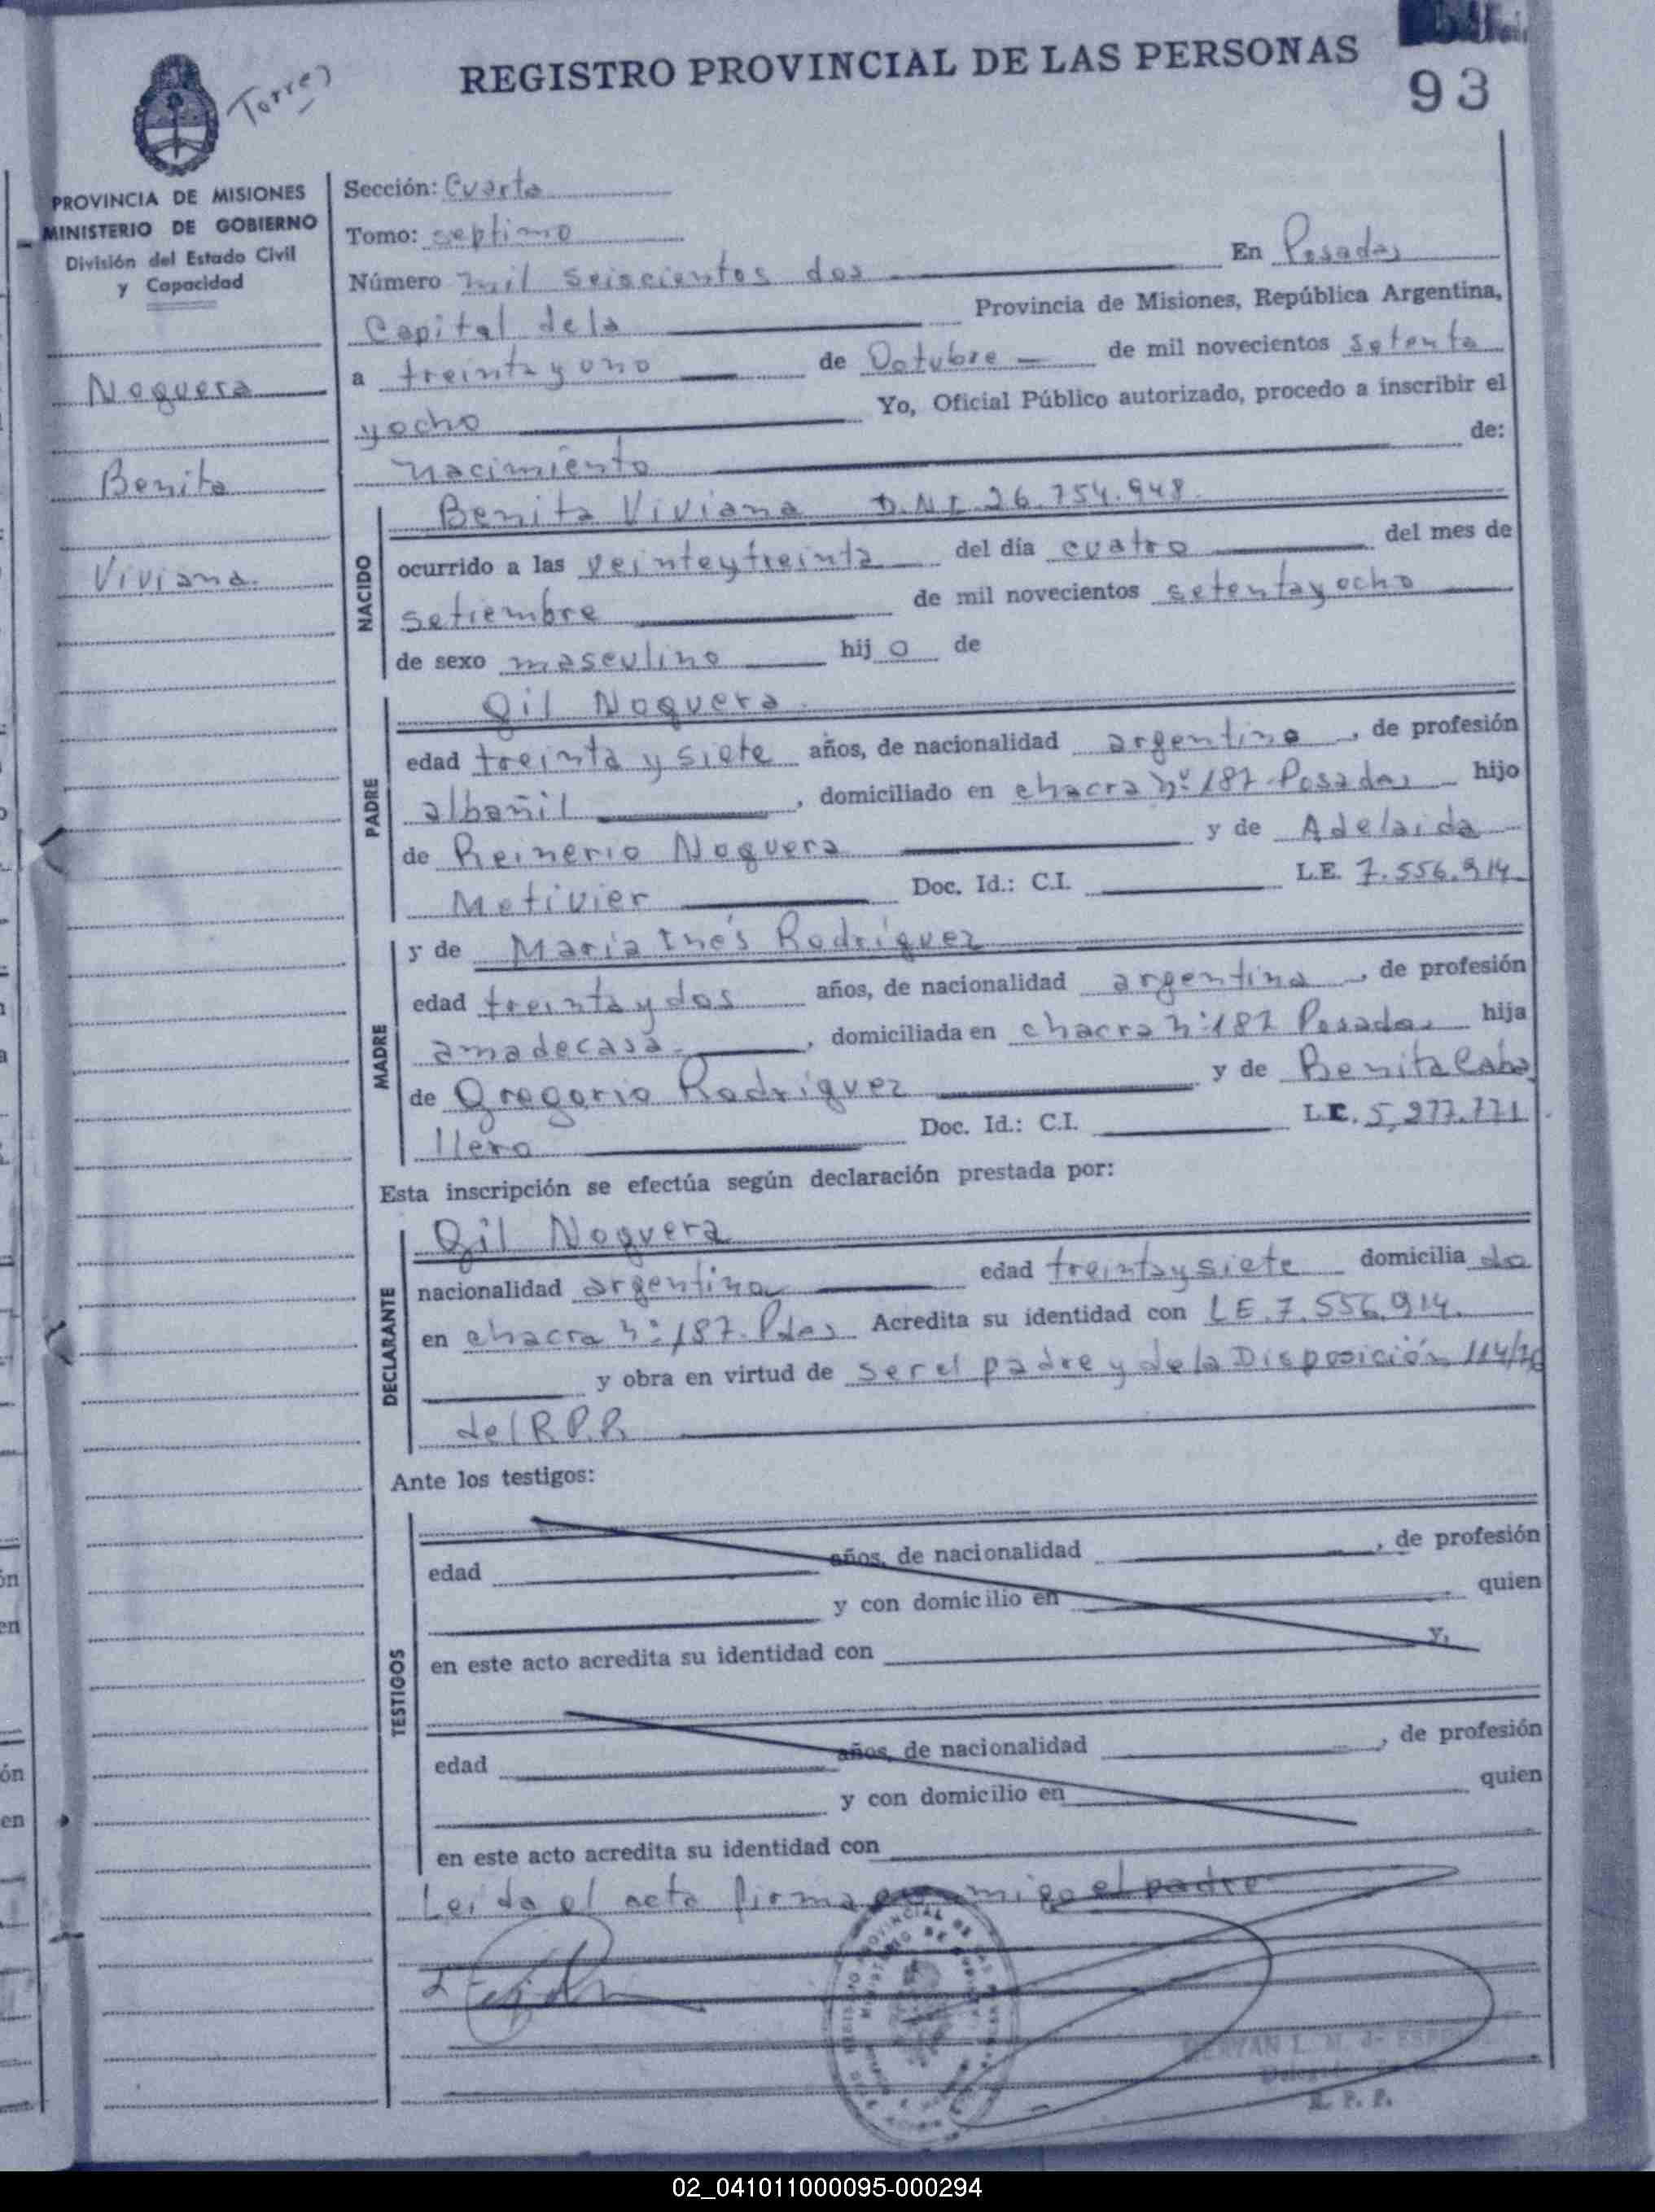 REGISTRO PROVINCIAL DE LAS PERSONAS
93
Torres
PROVINCIA DE MISIONES
MINISTERIO DE GOBIERNO
División del Estado Civil
y Capacidad
Noguera
Benita
Viviana.
Sección: Cuarta
Tomo: septimo
Número mil seiscientos dos En Posadas
Capital de la Provincia de Misiones, República Argentina,
a treinta y uno de Octubre de mil novecientos setenta
y ocho Yo, Oficial Público autorizado, procedo a inscribir el
nacimiento de:
NACIDO
Benita Viviana D.N.I. 26.754.948.
ocurrido a las veinte y treinta del día cuatro del mes de
setiembre de mil novecientos setenta y ocho
de sexo masculino hij o de
PADRE
Gil Noguera
edad treinta y siete años, de nacionalidad argentino, de profesión
albañil, domiciliado en chacra nº 187 Posadas hijo
de Reinerio Noguera y de Adelaida
Metivier Doc. Id.: C.I. L.E. 7.556.914
MADRE
y de María Inés Rodríguez
edad treinta y dos años, de nacionalidad argentina, de profesión
ama de casa, domiciliada en chacra nº 187 Posadas hija
de Gregorio Rodríguez y de Benita Caba
llero Doc. Id.: C.I. L.C. 5,277.771
Esta inscripción se efectúa según declaración prestada por:
DECLARANTE
Gil Noguera
nacionalidad argentina edad treinta y siete domicilia do
en chacra nº 187. Pdas Acredita su identidad con L.E. 7.556.914.
y obra en virtud de ser el padre y de la Disposición 114/76
del R.P.P.
Ante los testigos:
TESTIGOS
edad años, de nacionalidad , de profesión
y con domicilio en quien
en este acto acredita su identidad con y,
edad años, de nacionalidad , de profesión
y con domicilio en quien
en este acto acredita su identidad con
Leida el acta firma conmigo el padre
R. P. P.
02_041011000095-000294